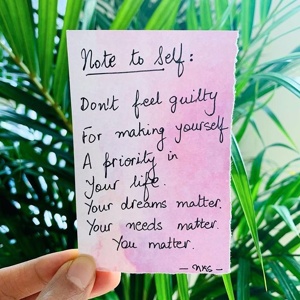 Note to Self:
Don't feel guilty
For making yourself
A priority in
Your life.
Your dreams matter.
Your needs matter.
You matter.
— NKS —